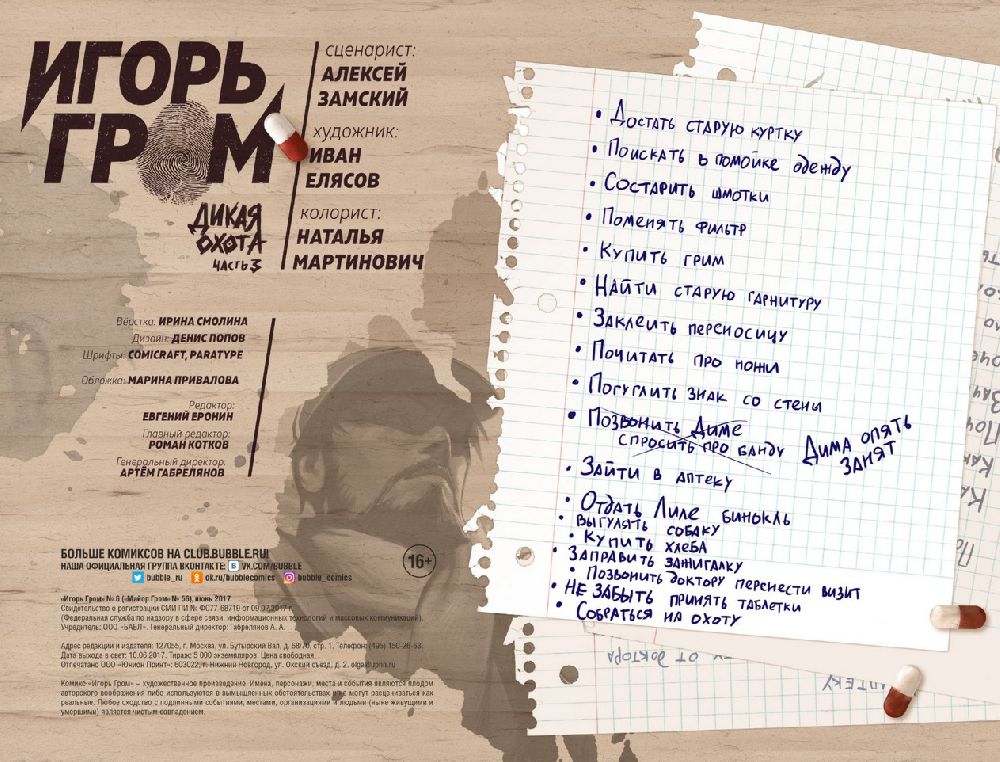 ИГОРЬ
ГРОМ
ДИКАЯ
ОХОТА
ЧАСТЬ 3
сценарист:
АЛЕКСЕЙ
ЗАМСКИЙ
художник:
ИВАН
ЕЛЯСОВ
колорист:
НАТАЛЬЯ
МАРТИНОВИЧ
Вёрстка: ИРИНА СМОЛИНА
Дизайн: ДЕНИС ПОПОВ
Шрифты: COMICRAFT, PARATYPE
Обложка: МАРИНА ПРИВАЛОВА
Редактор:
ЕВГЕНИЙ ЕРОНИН
Главный редактор:
РОМАН КОТКОВ
Генеральный директор:
АРТЁМ ГАБРЕЛЯНОВ
БОЛЬШЕ КОМИКСОВ НА CLUB.BUBBLE.RU!
НАША ОФИЦИАЛЬНАЯ ГРУППА ВКОНТАКТЕ: VK.COM/BUBBLE
bubble_ru ok.ru/bubblecomics bubble_comics
16+
«Игорь Гром» № 6 («Майор Гром» № 56), июнь 2017
Свидетельство о регистрации СМИ ПИ № ФС77-68719 от 09.02.2017 г.
(Федеральная служба по надзору в сфере связи, информационных технологий и массовых коммуникаций).
Учредитель: ООО «БАБЛ». Генеральный директор: Габрелянов А. А.
Адрес редакции и издателя: 127055, г. Москва, ул. Бутырский Вал, д. 68/70, стр. 1. Телефон:
Дата выхода в свет: 10.06.2017. Тираж: 5 000 экземпляров. Цена свободная.
Отпечатано ООО «Юнион Принт»: 603022, г. Нижний Новгород, ул. Окский съезд, д. 2.
Комикс «Игорь Гром» – художественное произведение. Имена, персонажи, места и события являются плодом
авторского воображения либо используются в вымышленных обстоятельствах и не могут расцениваться как
реальные. Любое сходство с подлинными событиями, местами, организациями и людьми (ныне живущими и
умершими) является чистым совпадением.
• Достать старую куртку
• Поискать в помойке одежду
• Состарить шмотки
• Поменять фильтр
• Купить грим
• Найти старую гарнитуру
• Заклеить переносицу
• Почитать про ножи
• Погуглить знак со стены
• Позвонить Диме
спросить про банду
Дима опять
занят
• Зайти в аптеку
• Отдать Лиле бинокль
• Выгулять собаку
• Купить хлеба
• Заправить зажигалку
• Позвонить доктору перенести визит
• Не забыть принять таблетки
• Собраться на охоту
от доктора
аптеку